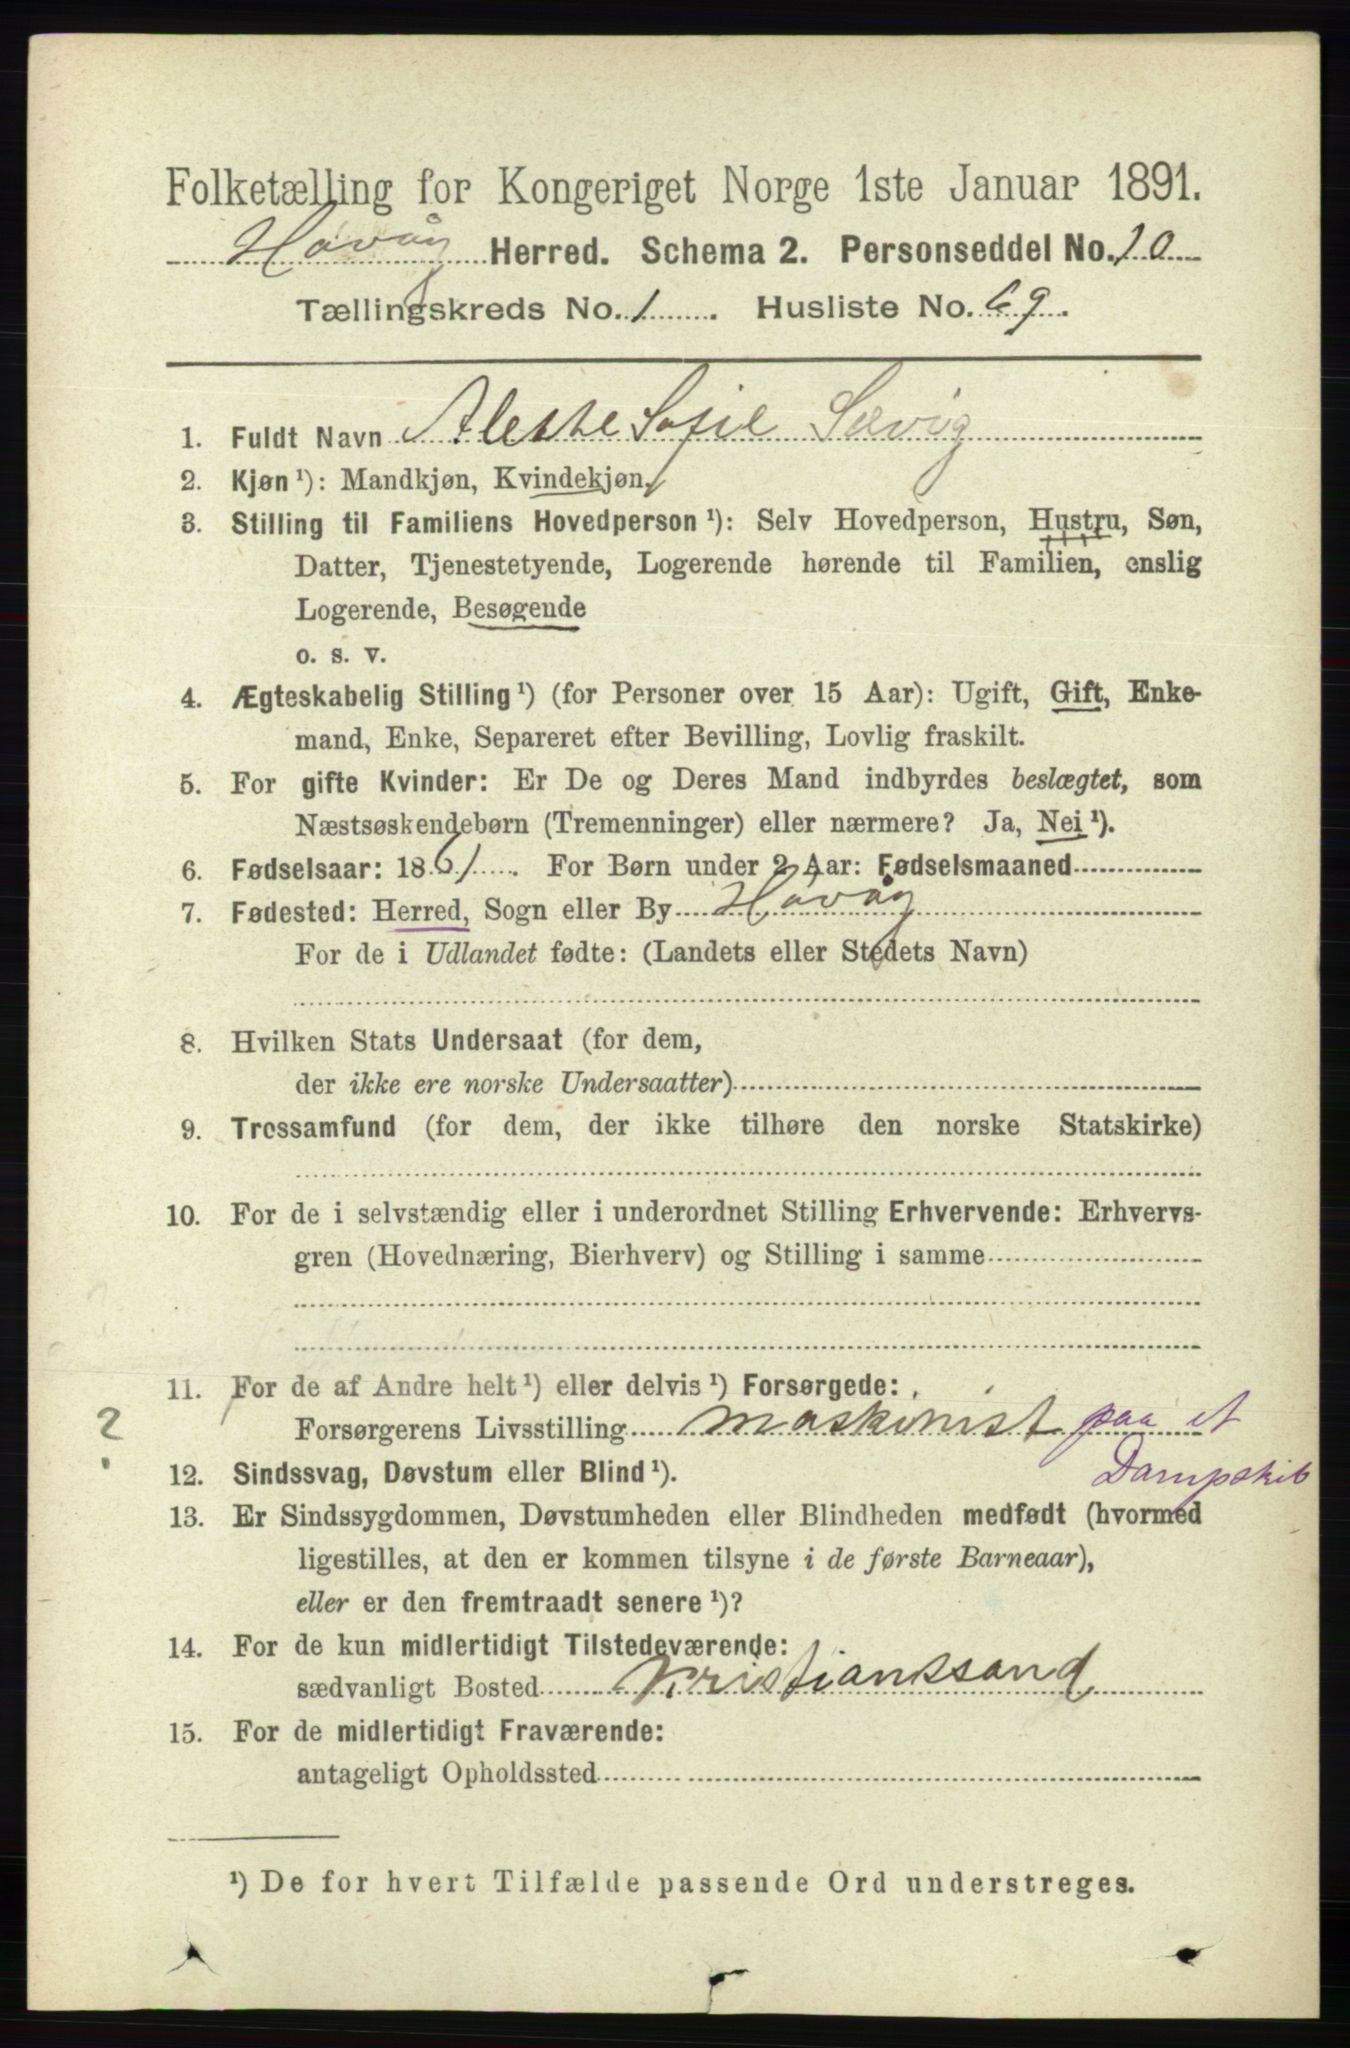 Folketælling for Kongeriget Norge 1ste Januar 1891.
Høvåg Herred. Schema 2. Personseddel No. 10
Tællingskreds No. 1. Husliste No. 69.
1. Fuldt Navn Alette Sofie Sævig
2. Kjøn ¹): Mandkjøn, Kvindekjøn.
3. Stilling til Familiens Hovedperson ¹): Selv Hovedperson, Hustru, Søn,
Datter, Tjenestetyende, Logerende hørende til Familien, enslig
Logerende, Besøgende
o. s. v.
4. Ægteskabelig Stilling ¹) (for Personer over 15 Aar): Ugift, Gift, Enke-
mand, Enke, Separeret efter Bevilling, Lovlig fraskilt.
5. For gifte Kvinder: Er De og Deres Mand indbyrdes beslægtet, som
Næstsøskendebørn (Tremenninger) eller nærmere? Ja, Nei ¹).
6. Fødselsaar: 1861. For Børn under 2 Aar: Fødselsmaaned
7. Fødested: Herred, Sogn eller By Høvåg
For de i Udlandet fødte: (Landets eller Stedets Navn)
8. Hvilken Stats Undersaat (for dem,
der ikke ere norske Undersaatter)
9. Trossamfund (for dem, der ikke tilhøre den norske Statskirke)
10. For de i selvstændig eller i underordnet Stilling Erhvervende: Erhvervs-
gren (Hovednæring, Bierhverv) og Stilling i samme
11. For de af Andre helt ¹) eller delvis ¹) Forsørgede:
? Forsørgerens Livsstilling maskinist paa et
Dampskib
12. Sindssvag, Døvstum eller Blind ¹).
13. Er Sindssygdommen, Døvstumheden eller Blindheden medfødt (hvormed
ligestilles, at den er kommen tilsyne i de første Barneaar),
eller er den fremtraadt senere ¹)?
14. For de kun midlertidigt Tilstedeværende:
sædvanligt Bosted Kristianssand
15. For de midlertidigt Fraværende:
antageligt Opholdssted
¹) De for hvert Tilfælde passende Ord understreges.